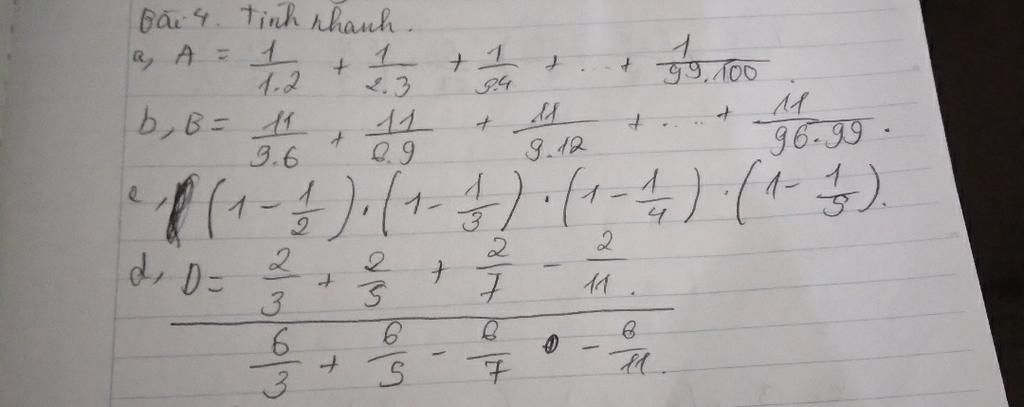 Bài 4. Tính nhanh.
a, A = 1/1.2 + 1/2.3 + 1/3.4 + ... + 1/99.100.
b, B = 11/3.6 + 11/6.9 + 11/9.12 + .... + 11/96.99.
c, (1 - 1/2) . (1 - 1/3) . (1 - 1/4) . (1 - 1/5).
d, D = 2/3 + 2/5 + 2/7 - 2/11.
6/3 + 6/5 - 6/7 - 6/11.